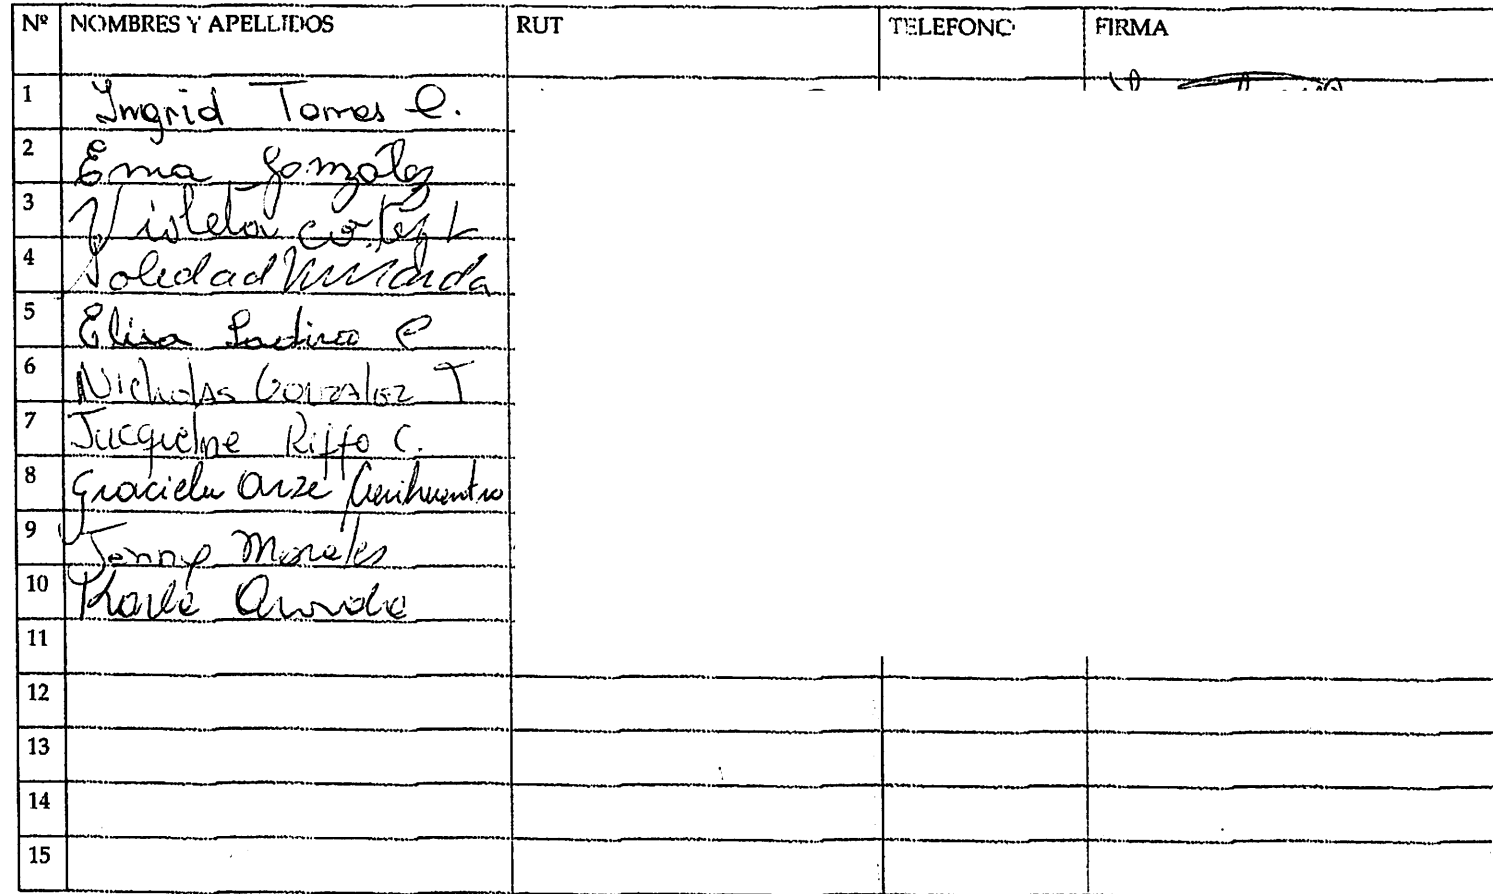 Nº NOMBRES Y APELLIDOS RUT TELEFONO FIRMA
1 Ingrid Torres C.
2 Ema González
3 Violeta Cortés L
4 Soledad Miranda
5 Elisa P
6 Nicholas Gonzalez T
7 Jacqueline Riffo C.
8 Graciela Arze
9 Jenny Morales
10 Karla
11
12
13
14
15